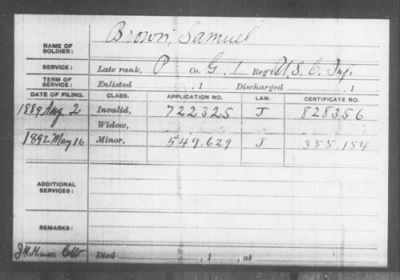 Brown, Samuel
NAME OF SOLDIER:
SERVICE: Late rank, P Co. G, 1 Reg't U.S.C. Inf.
TERM OF SERVICE: Enlisted , 1 Discharged , 1
DATE OF FILING. CLASS. APPLICATION NO. LAW. CERTIFICATE NO.
1889 Aug 2 Invalid, 722325 J 828356
Widow,
1892 May 16 Minor, 549.629 J 355.154
ADDITIONAL SERVICES:
REMARKS:
Died , 1 , at